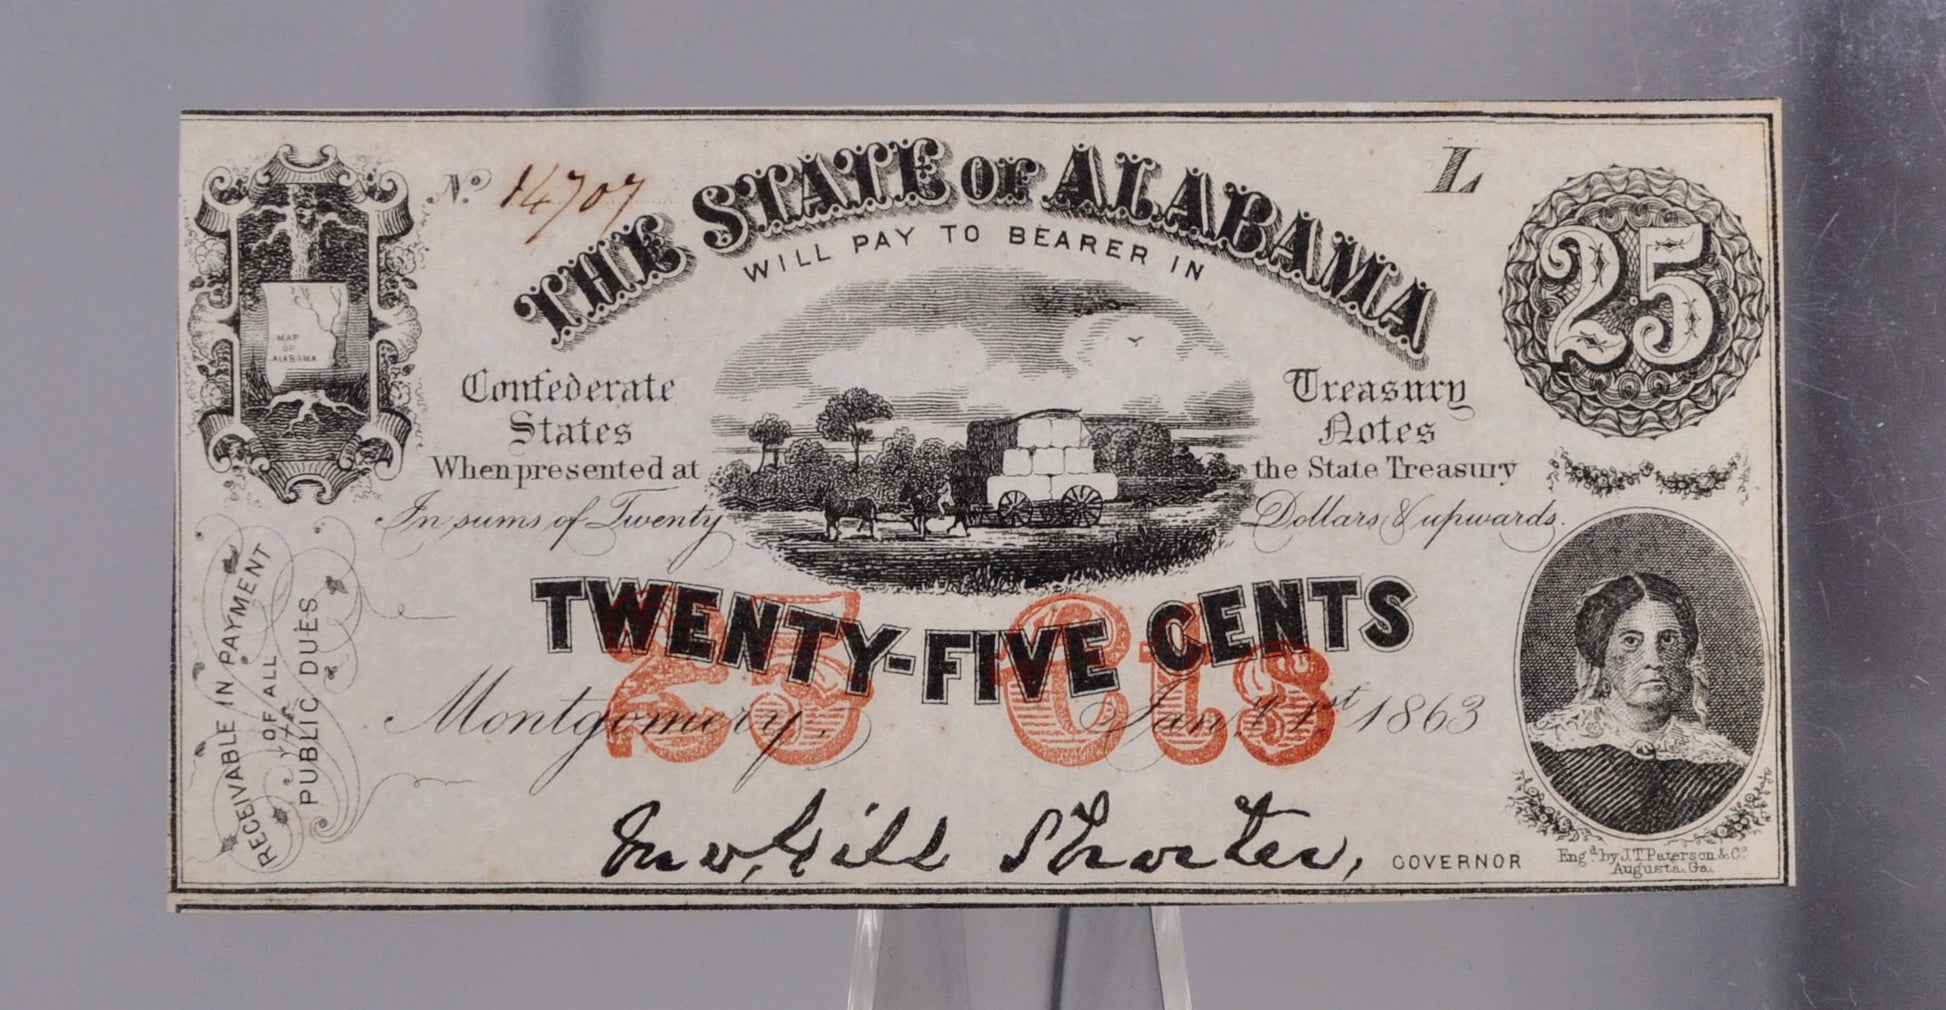 No. 14707
L
THE STATE OF ALABAMA
WILL PAY TO BEARER IN
25
MAP
OF
ALABAMA
Confederate
States
Treasury
Notes
When presented at
the State Treasury
In sums of Twenty
Dollars & upwards.
TWENTY-FIVE CENTS
25 Cts
Montgomery, Jany. 1st 1863
RECEIVABLE IN PAYMENT
OF ALL
THE
PUBLIC DUES
Jno. Gill Shorter, GOVERNOR
Engd. by J.T. Paterson & Co.
Augusta, Ga.